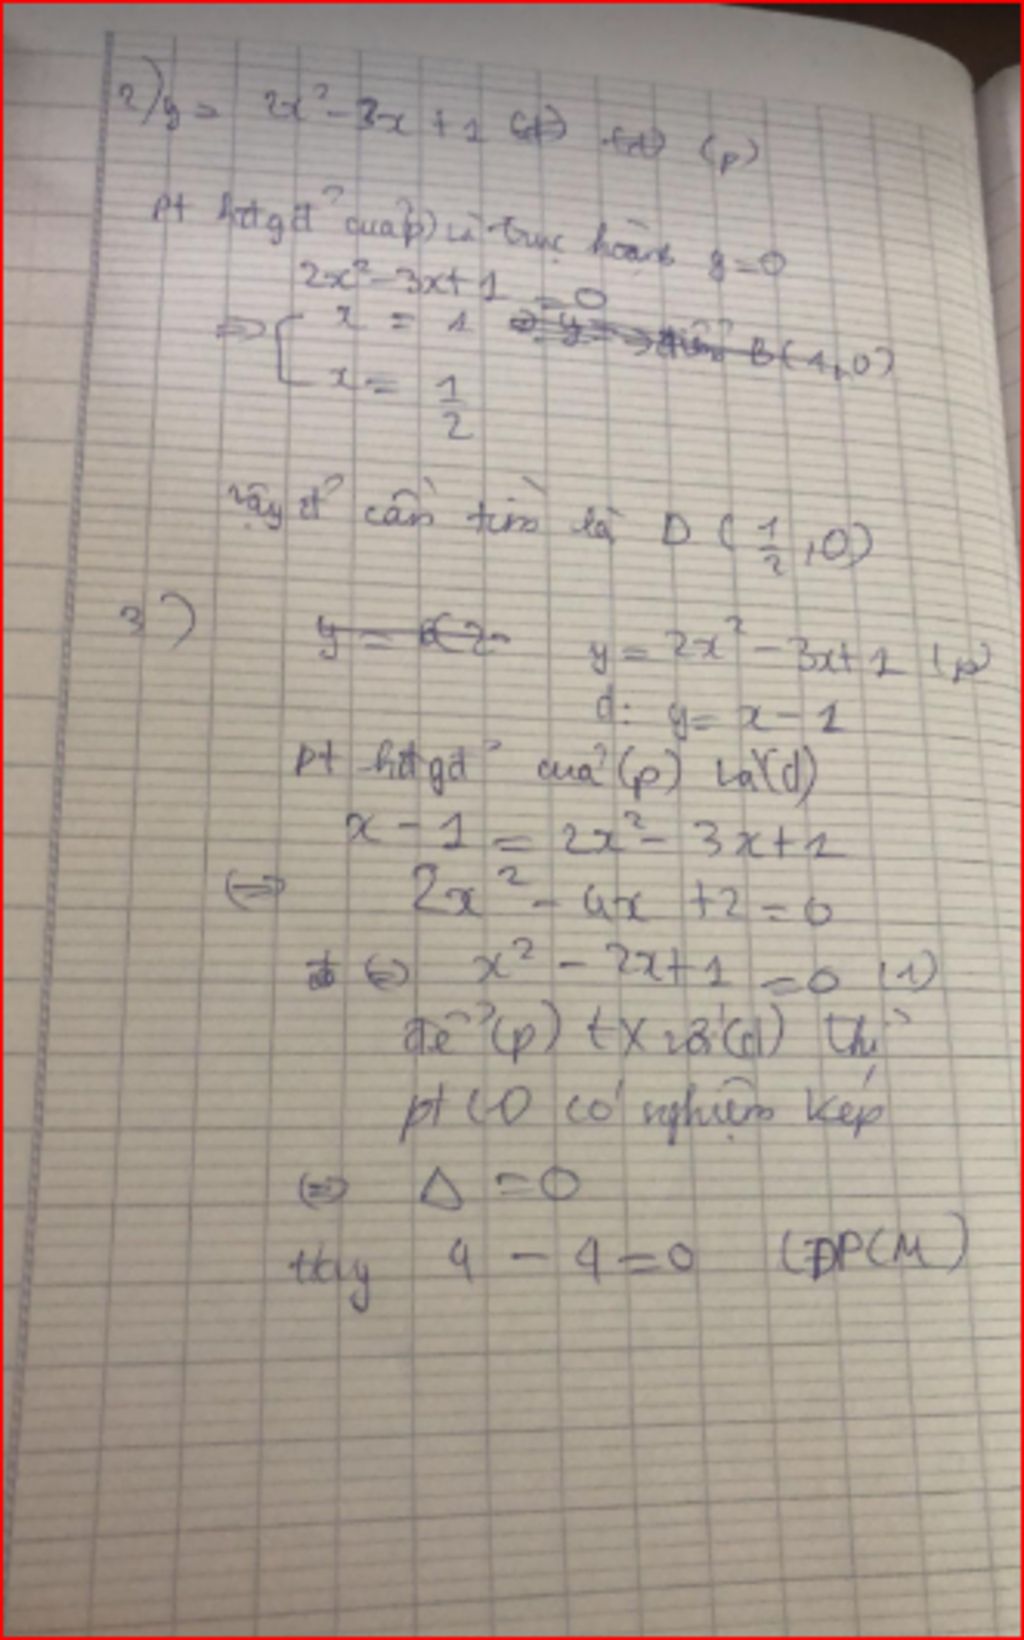 2) y = 2x² - 3x + 1 (p)
pt hđgđ² của (p) và trục hoành y = 0
2x² - 3x + 1 = 0
=> [ x = 1 B(1,0)
x = 1/2
vậy đ² cần tìm là D (1/2, 0)
3) y =
y = 2x² - 3x + 1 (p)
d: y = x - 1
pt hđgđ² của (p) và (d)
x - 1 = 2x² - 3x + 1
<=> 2x² - 4x + 2 = 0
<=> x² - 2x + 1 = 0 (1)
để (p) tx với (d) thì
pt (1) có nghiệm kép
<=> Δ = 0
hay 4 - 4 = 0 (ĐPCM)